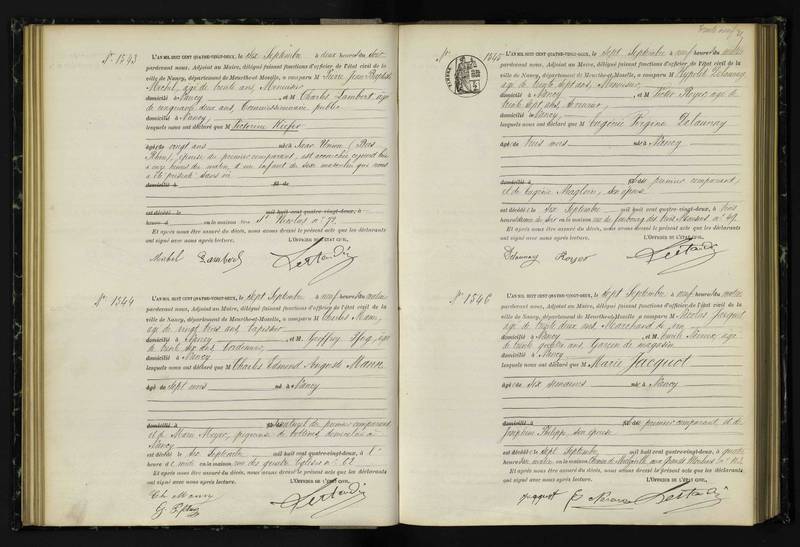 N° 1543
L'AN MIL HUIT CENT QUATRE-VINGT-DEUX, le six Septembre à deux heures du soir
pardevant nous, Adjoint au Maire, délégué faisant fonctions d'officier de l'état civil de la
ville de Nancy, département de Meurthe-et-Moselle, a comparu M Pierre Jean Baptiste
Michel, âgé de trente ans, Menuisier
domicilié à Nancy, et M Charles Lambert, âgé
de cinquante deux ans, Commissionnaire public
domicilié à Nancy,
lesquels nous ont déclaré que M Victorine Kiefer
âgé de vingt ans né à Saar Union (Bas
Rhin), épouse du premier comparant, est accouchée cejourd'hui
à onze heures du matin, d'un enfant du sexe masculin qui nous
a été présenté sans vie
domicilié à fils de
est décédé le mil huit cent quatre-vingt-deux, à
heure d en la maison rue St Nicolas n° 72.
Et après nous être assuré du décès, nous avons dressé le présent acte que les déclarants
ont signé avec nous après lecture. L'OFFICIER DE L'ÉTAT CIVIL,
Michel Lambert
N° 1544
L'AN MIL HUIT CENT QUATRE-VINGT-DEUX, le sept Septembre à neuf heures du matin
pardevant nous, Adjoint au Maire, délégué faisant fonctions d'officier de l'état civil de la
ville de Nancy, département de Meurthe-et-Moselle, a comparu M Charles Mann,
âgé de vingt trois ans, tapissier
domicilié à Nancy, et M. Geoffroy
de trente six ans, Cordonnier,
domicilié à Nancy
lesquels nous ont déclaré que M Charles Edmond Auguste Mann
âgé de sept mois né à Nancy
domicilié à fils naturel du premier comparant
et de Marie Meyer, piqueuse de bottines domiciliée à
Nancy
est décédé le six Septembre mil huit cent quatre-vingt-deux, à
heure d en la maison rue des quatre Églises n° 62.
Et après nous être assuré du décès, nous avons dressé le présent acte que les déclarants
ont signé avec nous après lecture. L'OFFICIER DE L'ÉTAT CIVIL,
Ch Mann
N° 1545
L'AN MIL HUIT CENT QUATRE-VINGT-DEUX, le sept Septembre à neuf heures du matin
pardevant nous, Adjoint au Maire, délégué faisant fonctions d'officier de l'état civil de la
ville de Nancy, département de Meurthe-et-Moselle, a comparu M Hypolite Delaunay
âgé de trente sept ans, Menuisier,
domicilié à Nancy, et M Victor Royer, âgé de
trente sept ans,
domicilié à Nancy,
lesquels nous ont déclaré que M Eugénie Virginie Delaunay
âgé de trois mois née à Nancy
domicilié à fille du premier comparant,
et de Eugénie son épouse
est décédé le six Septembre mil huit cent quatre-vingt-deux, à trois
heures du soir en la maison rue du faubourg des trois Maisons n° 49.
Et après nous être assuré du décès, nous avons dressé le présent acte que les déclarants
ont signé avec nous après lecture. L'OFFICIER DE L'ÉTAT CIVIL,
Delaunay Royer
N° 1546
L'AN MIL HUIT CENT QUATRE-VINGT-DEUX, le sept Septembre à neuf heures du matin
pardevant nous, Adjoint au Maire, délégué faisant fonctions d'officier de l'état civil de la
ville de Nancy, département de Meurthe-et-Moselle, a comparu M Nicolas Jacquot
âgé de trente deux ans, Marchand de vin,
domicilié à Nancy, et M Emile âgé
de trente quatre ans, Garçon de magasin
domicilié à Nancy
lesquels nous ont déclaré que M Marie Jacquot
âgé de six semaines né à Nancy
domicilié à fille du premier comparant, et de
Joséphine Philippe, son épouse
est décédé le sept Septembre mil huit cent quatre-vingt-deux, à quatre
heures du matin en la maison Chemin de Malzéville, aux Grands Moulins n° 102.
Et après nous être assuré du décès, nous avons dressé le présent acte que les déclarants
ont signé avec nous après lecture. L'OFFICIER DE L'ÉTAT CIVIL,
Jacquot